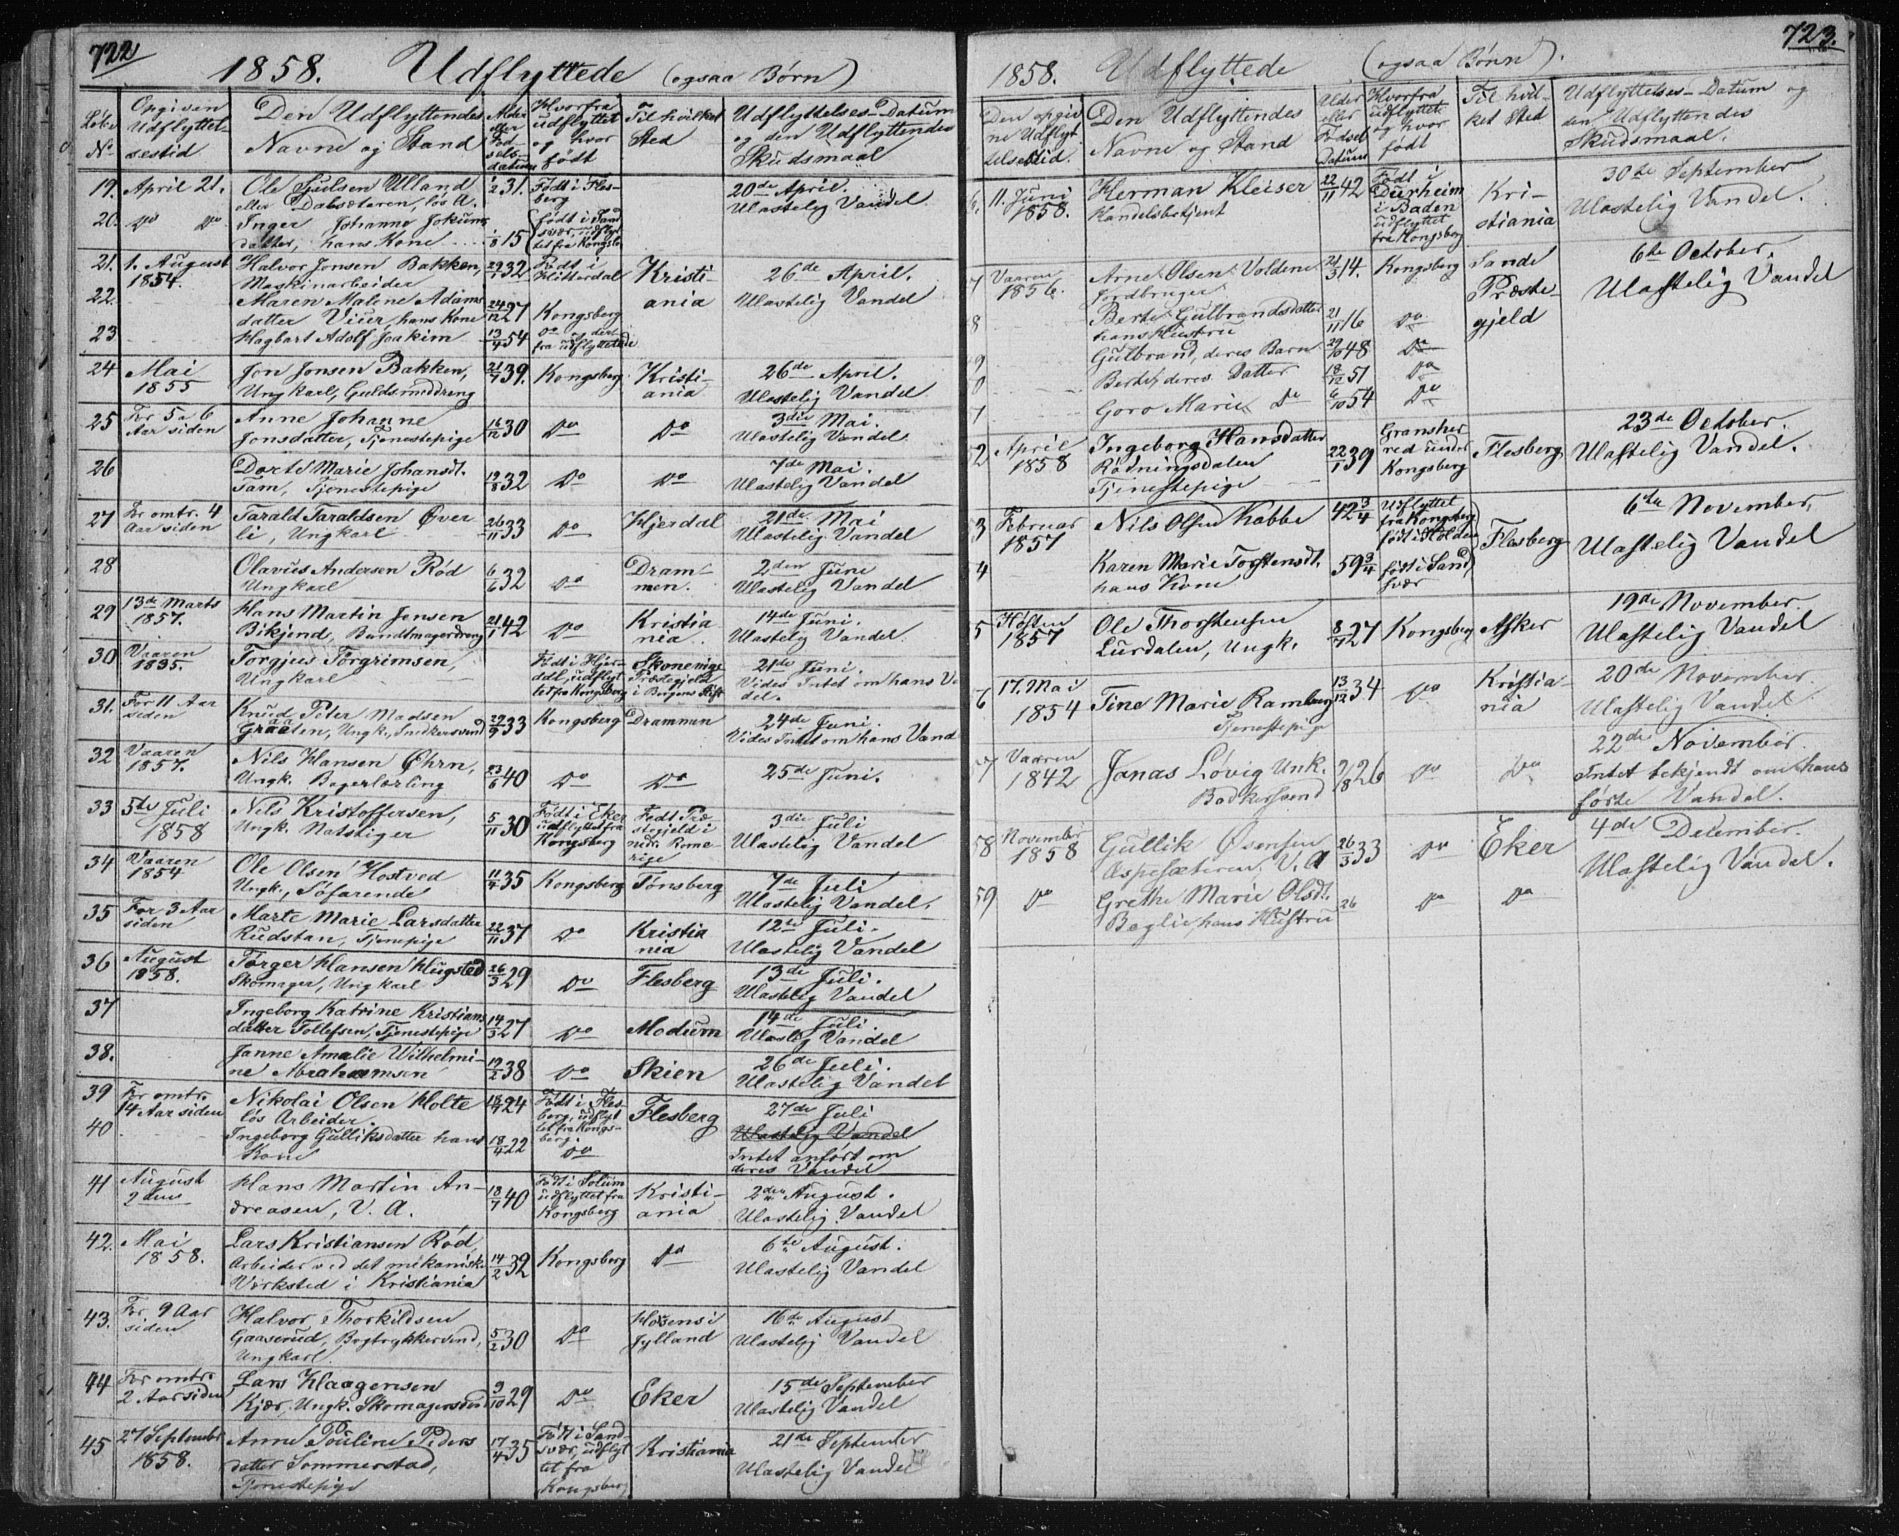 722
1858. Udflyttede (ogsaa Børn)
Løbe No
Opgiven Udflyttelsestid
Den Udflyttendes Navne og Stand
Alder eller Fødselsdatum
Hvorfra udflyttet og hvor født
Til hvilket Sted
Udflyttelses-Datum og den Udflyttendes Skudsmaal
19. April 21. Ole Ulland 31. Født i Flesberg 20de April.
eller Dalsæteren, løs A. Ulastelig Vandel
20. Do Do Inger Johanne
datter, hans Kone 1/8 15 født i Sandsvær, udflyttet fra Kongsb
21. 1. August 1854. Halvor Jonsen Bakken, 32 Født i Hitterdal Kristiania 26de April.
Maskinarbeider Ulastelig Vandel
22. Maren Malene Adamsdatter Vier, hans Kone 24/12 27 Kongsberg
23 Hagbart Adolf Joakim 13/4 54 Do og derfra udflyttede
24 Mai 1855 Jon Jonsen Bakken, 39. Kongsberg Kristiania 26de April.
Ungkarl, Guldsmeddreng Ulastelig Vandel
25 For 5 a 6 Aar siden Anne Johanne 16/12 30 Do Do 3die Mai.
Jonsdatter, Tjenestepige Ulastelig Vandel
26 Dorte Marie Johansdt. 19/8 32 Do Do 7de Mai.
Fam, Tjenestepige Ulastelig Vandel
27 For omtr. 4 Aar siden Tarald Taraldsen Øverli, Ungkarl 26/11 33 Do Hjerdal 21de Mai
Ulastelig Vandel
28 Olavus Andersen Rød 6/6 32 Do Drammen. 2den Juni
Ungkarl Ulastelig Vandel
29 13de Marts 1857. Hans Martin Jensen 21/1 42 Do Kristiania 14de Juni.
Bikjend, Bundtmagerdreng Ulastelig Vandel.
30 Vaaren 1835. Torgjus Torgrimsen, Født i Hjerdal, udflyttet fra Kongsberg Skonevigs Præstegjeld i Bergens Stift 21de Juni.
Ungkarl Vides Intet om hans Vandel.
31. For 11 Aar siden Knud Peter Madsen 33 Kongsberg Drammen 24de Juni.
Graaten, Ungk., Snedkersvend Vides Intet om hans Vand
32 Vaaren 1857. Nils Hansen Øhrn, 23/6 40 Do Do 25de Juni.
Ungk. Bagerlærling
33 5te Juli 1858 Nils Kristoffersen, 5/11 30 Født i Eker udflyttet fra Kongsberg Fedt Præstegjeld i nedre Romerige 3die Juli
Ungk. Ulastelig Vandel
34 Vaaren 1854 Ole Olsen Hostved 11/4 35 Kongsberg Tønsberg 7de Juli
Ungk., Søfarende Ulastelig Vandel.
35 For 3 Aar siden Marte Marie Larsdatter 22/11 37 Do Kristiania 12te Juli.
Rudstan, Tjenepige Ulastelig Vandel
36 August 1858. Torger Hansen Hugsted 26/3 29 Do Flesberg 13de Juli.
Skomager, Ungkarl Ulastelig Vandel
37 Ingeborg Katrine Kristiansdatter Tollefsen, Tjenestepige 14/3 27 Do Modum 14de Juli.
Ulastelig Vandel
38. Janne Amalie Wilhelmine Abrahamsen 19/2 38 Do Skien 26de Juli.
Ulastelig Vandel
39 For omtr. 14 Aar siden Nikolai Olsen Holte 24 Født i Flesberg, udflyttet fra Kongsberg. Flesberg 27de Juli
løs Arbeider Ulastelig Vandel
40 Ingeborg Gulliksdatter hans Kone 18/4 22 Do Intet anført om deres Vandel
41 August 2den Hans Martin Andreasen, V. A. 18/7 40 Født i Solum udflyttet fra Kongsberg Kristiania 2den August.
Ulastelig Vandel
42. Mai 1858. Lars Kristiansen Rød 14/2 32 Kongsberg Do 6te August.
Arbeider ved det mekaniske Værksted i Kristiania Ulastelig Vandel
43. For 9 Aar siden Halvor Thorkildsen 5/2 30 Do Horsens i Jylland 16te August
Gaaserud, Bogtrykkersvend, Ungkarl. Ulastelig Vandel
44 For omtr. 2 Aar siden Lars Klaagensen 9/10 29 Do Eker 15de September
Kjær, Ungk. Skomagersvend Ulastelig Vandel
45 27 Septembr 1858. Anne Pouline Pedersdatter Sommerstad, Tjenestepige 17/4 35 Født i Sandsvær, udflyttet fra Kongsberg Kristiania 21de September
Ulastelig Vandel
723.
1858. Udflyttede (ogsaa Børn).
Den opgivne Udflyttelsestid.
Den Udflyttendes Navne og Stand
Alder eller Fødsels Datum
Hvorfra udflyttet og hvor født
Til hvilket Sted
Udflyttelses-Datum og den Udflyttendes Skudsmaal.
6, 11. Juni 1858. Herman Kleiser 22/11 42 Født i Durheim i Baden udflyttet fra Kongsberg Kristiania 30te September
Handelsbetjent Ulastelig Vandel.
7 Vaaren 1856. Arne Olsen Voldene 14. Kongsberg Sande Præstegjeld 6te October.
Jordbruger Ulastelig Vandel
8 Berte Gulbrandsdatter hans Hustru 21/11 16 Do
9 Gulbrand, deres Barn 29/10 48 Do
0 Berte, deres Datter 18/12 51 Do
1 Goro Marie Do 6/10 54 Do
2 April 1858 Ingeborg Hansdatter 22/1 39 Gransherred under Kongsberg Flesberg 23de October.
Rødningsdalen Tjenestepige Ulastelig Vandel.
3 Februar 1857 Nils Olsen Kobbe 42 3/4 Udflyttet fra Kongsberg født i Holden Flesberg 6te November,
4 Karen Marie Torstensdt. hans Kone 59 3/4 født i Sandsvær Ulastelig Vandel
5 Høsten 1857 Ole Thorstensen 27 Kongsberg Asker 19de November.
Lurdalen, Ungk. Ulastelig Vandel
6 17. Mai 1854 Tine Marie Ramberg 13/12 34 Do Kristiania 20de November.
Tjenestepige Ulastelig Vandel
7 Vaaren 1842 Jonas Løvig Unk. 2/8 26 Do Do 22de November.
Bødkersvend Intet bekjendt om hans førte Vandel.
58 November 1858 Gullik Osensen 26/3 33 Do Eker 4de December.
Aspesæteren, V. A Ulastelig Vandel.
59 Do Grethe Marie Olsdt. 26 Do Do
Beglie hans Hustru